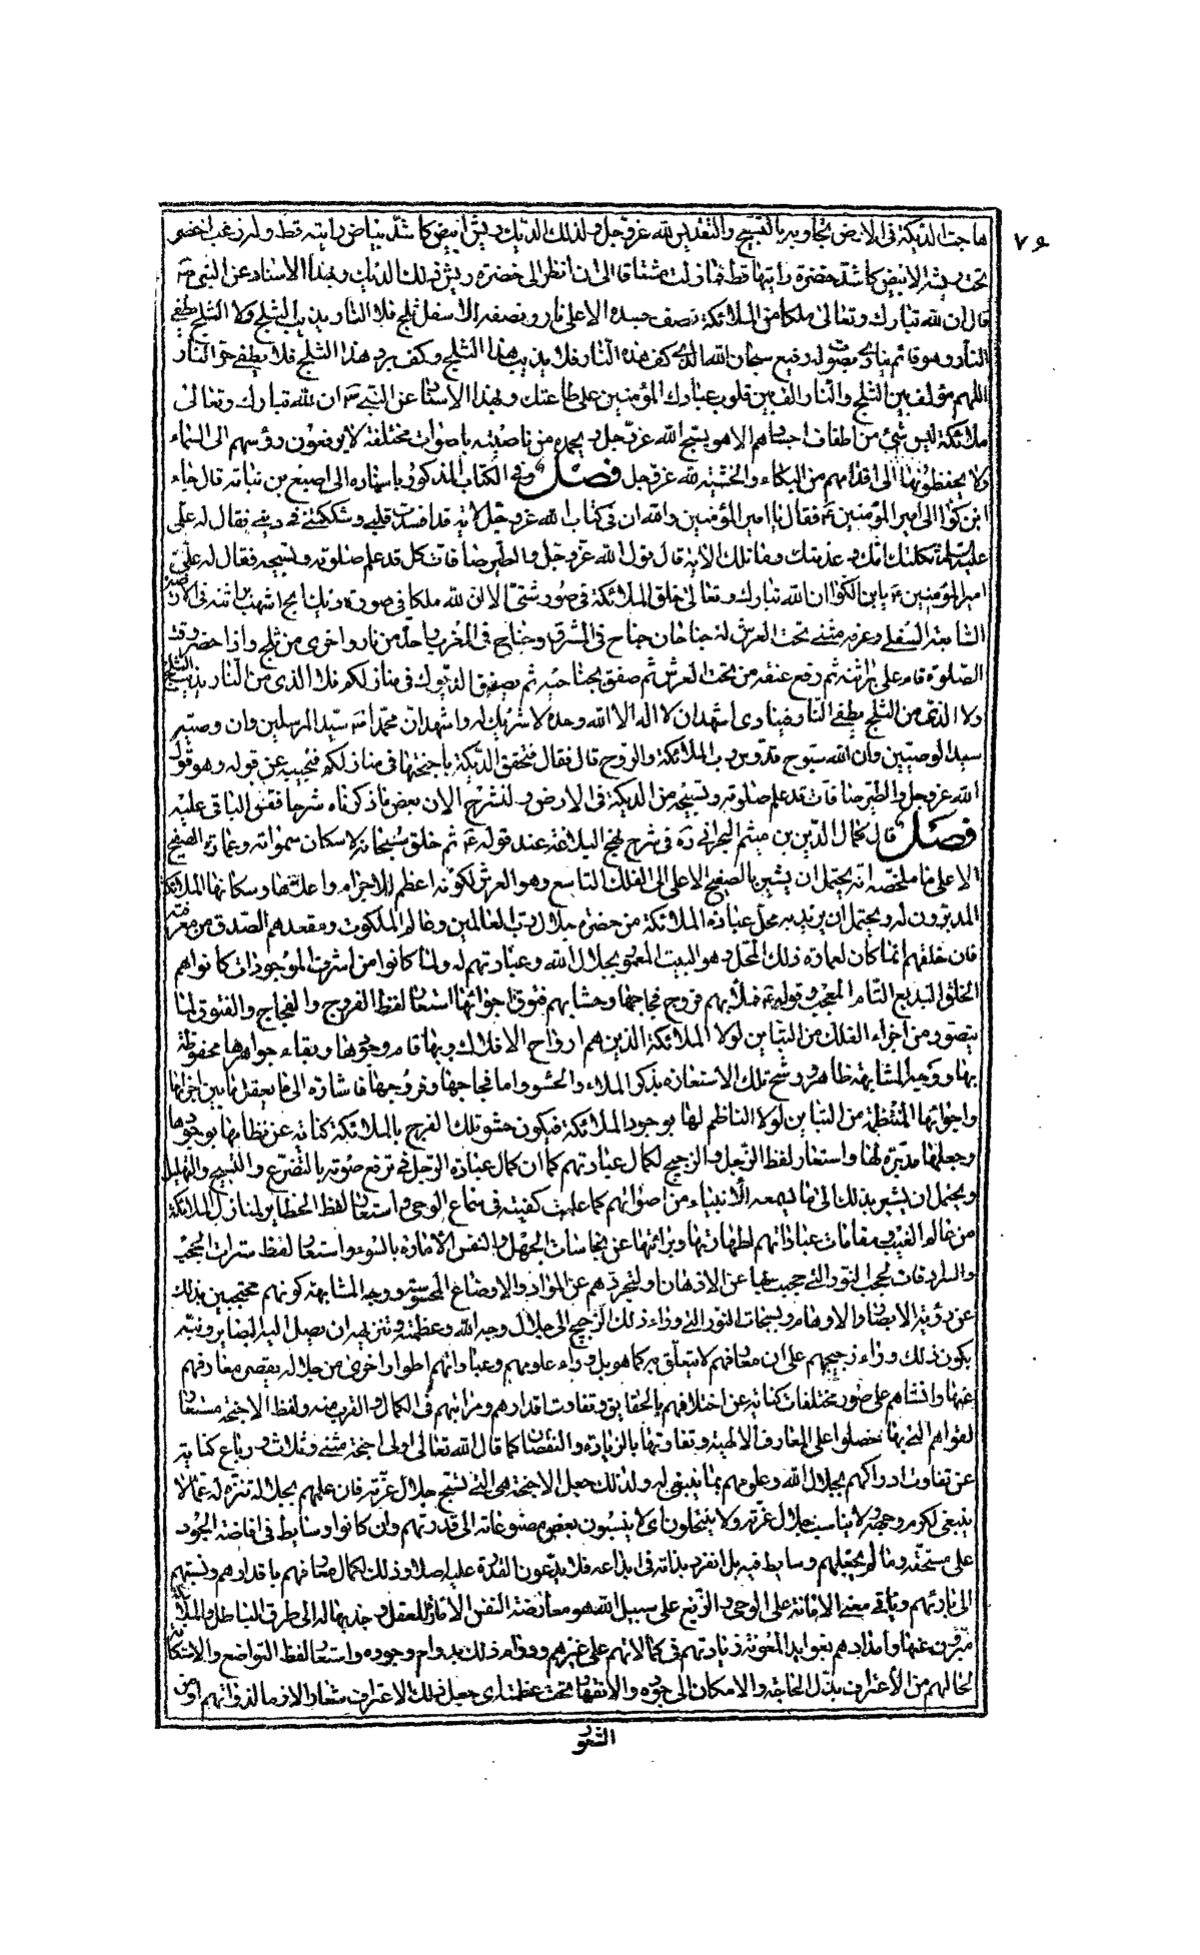 ٧٦
هاجت الديكة فى الارض تجاوبه بالتسبيح والتقديس لله عز وجل ولذلك الديك ريش ابيض كاشد بياض رايته قط وله زغب اخضر
تحت ريشه الابيض كاشد خضرة رايتها قط فما زلت مشتاقا الى ان انظر الى خضرة ريش ذلك الديك وبهذا الاسناد عن النبى ص
قال ان لله تبارك وتعالى ملكا من الملائكة نصف جسده الاعلى نار ونصفه الاسفل ثلج فلا النار يذيب الثلج ولا الثلج يطفى
النار وهو قائم ينادى بصوت له رفيع سبحان الله الذى كف هذه النار فلا يذيب هذا الثلج وكف برد هذا الثلج فلا يطفى حر النار
اللهم مؤلف بين الثلج والنار الف بين قلوب عبادك المؤمنين على طاعتك وبهذا الاسناد عن النبى ص ان لله تبارك وتعالى
ملائكة ليس شئ من اطباق اجسادهم الا هو يسبح الله عز وجل ويحمده من ناحيته باصوات مختلفة لا يرفعون رؤسهم الى السماء
ولا يخفضونها الى اقدامهم من البكاء والخشية لله عز وجل فصل وفى الكتاب المذكور باسناده الى اصبغ بن نباتة قال جاء
ابن كوا الى امير المؤمنين ع فقال يا امير المؤمنين والله ان فى كتاب الله عز وجل لاية قد افسدت قلبى وشككتنى فى دينى فقال له على
عليه السلام ثكلتك امك وعدمتك وما تلك الاية قال قول الله عز وجل والطير صافات كل قد علم صلوته وتسبيحه فقال له على
امير المؤمنين ع يا بن الكوا ان الله تبارك وتعالى خلق الملائكة فى صور شتى الا ان لله ملكا فى صورة ديك ابح اشهب براثنه فى الارضين
السابعة السفلى وعرفه مثنى تحت العرش له جناحان جناح فى المشرق وجناح فى المغرب واحد من نار واخرى من ثلج واذا حضر وقت
الصلوة قام على براثنه ثم رفع عنقه من تحت العرش ثم صفق بجناحيه ثم يصفق الديوك فى منازلكم فلا الذى من النار يذيب الثلج
ولا الذى من الثلج يطفى النار فينادى اشهد ان لا اله الا الله وحده لا شريك له واشهد ان محمدا ص سيد المرسلين وان وصيه
سيد الوصيين وان الله سبوح قدوس رب الملائكة والروح قال فقال فتخفق الديكة باجنحتها فى منازلكم فتجيبه عن قوله وهو قول
الله عز وجل والطير صافات قد علم صلوته وتسبيحه من الديكة فى الارض ولنشرح الان بعض ما ذكرناه شرحا فنقول الباقى عليه
فصل قال كمال الدين بن ميثم البحرانى ره فى شرح نهج البلاغة عند قوله ع ثم خلق سبحانه لاسكان سمواته وعمارة الصفيح
الاعلى ما ملخصه انه يحتمل ان يشير بالصفيح الاعلى الى الفلك التاسع وهو العرش لكونه اعظم الاجرام واعلاها وسكانها الملائكة
المدبرون له ويحتمل ان يريد به محل عبادة الملائكة من حضرة جلال رب العالمين وعالم الملكوت ومقعدهم الصدق من معرفته
فان خلقهم انما كان لعمارة ذلك المحل وهو البيت المعمور بجلال الله وعبادتهم له ولما كانوا من اشرف الموجودات كانوا هم
الخلق البديع التام المعجب وقوله ع فملأ بهم فروج فجاجها وحشا بهم فتوق اجوائها استعار لفظ الفروج والفجاج والفتوق لما
يتصور من اجزاء الفلك من التباين لولا الملائكة الذين هم ارواح الافلاك وبها قام وجودها وبقاء جواهرها محفوظة
بها ووجه المشابهة ظاهر ورشح تلك الاستعارة بذكر الملاء والحشو واما فجاجها وفروجها فاشارة الى ما يعقل ما بين اجزائها
واجوائها المنتظمة من التباين لولا الناظم لها بوجود الملائكة فيكون حشو تلك الفرج بالملائكة كناية عن نظامها بوجودها
وجعلها مدبرة لها واستعار لفظ الزجل والزجيج لكمال عبادتهم كما ان كمال عبادة الرجل فى ترفع صوته بالتضرع والتسبيح والتهليل
ويحتمل ان يشير بذلك الى ما يسمعه الانبياء من اصواتهم كما علمت كفيته فى سماع الوحى واستعار لفظ الحظاير لمنازل الملائكة
من عالم الغيب ومقامات عباداتهم لطهارتها وبرائتها عن نجاسات الجهل والنفس الامارة بالسوء واستعار لفظ سترات الحجب
والسرادقات لحجب النور التى حجبت بها عن الاذهان او لتجردهم عن المواد والاوضاع المحسوسة ووجه المشابهة كونهم محتجبين بذلك
عن رؤية الابصار والاوهام وبسبحات النور التى وراء ذلك الزجيج الى جلال وجه الله وعظمته وتنزيهه ان يصل اليه البصاير ونبه
بكون ذلك وراء زجيجهم على ان معارفهم لا يتعلق به كما هو بل وراء علومهم وعباداتهم اطوار اخرى من جلاله يقصر معارفهم
عنها وانشاهم على صور مختلفات كناية عن اختلافهم بالحقايق وتفاوت اقدارهم ومراتبهم فى الكمال والقرب منه ولفظ الاجنحة مستعار
لقواهم التى بها حصلوا على المعارف الالهية وتفاوتها بالزيادة والنقصان كما قال الله تعالى اولى اجنحة مثنى وثلاث ورباع كناية
عن تفاوت ادراكهم بجلال الله وعلومهم بما ينبغى له ولذلك جعل الاجنحة هى التى تسبح جلال عزته فان علمهم بجلاله تنزيه له عما لا
ينبغى لكرم وجهه ولا يناسب جلال عزته ولا ينتحلون اى لا ينسبون بعض مصنوعاته الى قدرتهم وان كانوا وسايط فى افاضة الجود
على مستحقه وما لم يجعلهم وسايط فيه بل انفرد بذاته فى ابداعه فلا يدعون القدرة عليه اصلا وذلك لكمال معارفهم باقدارهم ونسبتهم
الى بارئهم وباقى معنى الامانة على الوحى والزيغ على سبيل الله هو معارضة النفس الامارة للعقل وجذبها له الى طرق الباطل والملائكة
مبرؤن عنها وامدادهم بفوايد المعونة زيادتهم فى كمالاتهم على غيرهم ودوام ذلك بدوام وجوده واستعار لفظ التواضع والاستكانة
لحالهم من الاعتراف بذل الحاجة والامكان الى جوده والانقهار تحت عظمته اى جعل ذلك الاعتراف شعارا لازما لذواتهم او من
الشعور